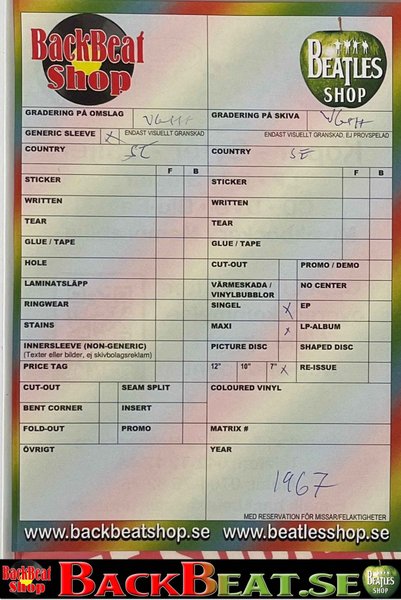 BackBeat
Shop
BEATLES
SHOP
GRADERING PÅ OMSLAG VG++
GRADERING PÅ SKIVA VG++
GENERIC SLEEVE X ENDAST VISUELLT GRANSKAD
ENDAST VISUELLT GRANSKAD, EJ PROVSPELAD
COUNTRY SE
COUNTRY SE
F B
F B
STICKER
STICKER
WRITTEN
WRITTEN
TEAR
TEAR
GLUE / TAPE
GLUE / TAPE
HOLE
CUT-OUT
PROMO / DEMO
LAMINATSLÄPP
VÄRMESKADA /
VINYLBUBBLOR
NO CENTER
RINGWEAR
SINGEL X
EP
STAINS
MAXI x
LP-ALBUM
INNERSLEEVE (NON-GENERIC)
(Texter eller bilder, ej skivbolagsreklam)
PICTURE DISC
SHAPED DISC
PRICE TAG
12" 10" 7" X
RE-ISSUE
CUT-OUT
SEAM SPLIT
COLOURED VINYL
BENT CORNER
INSERT
FOLD-OUT
PROMO
MATRIX #
ÖVRIGT
YEAR
1967
MED RESERVATION FÖR MISSAR/FELAKTIGHETER
www.backbeatshop.se www.beatlesshop.se
BackBeat
Shop
BACKBEAT.SE
BEATLES
SHOP